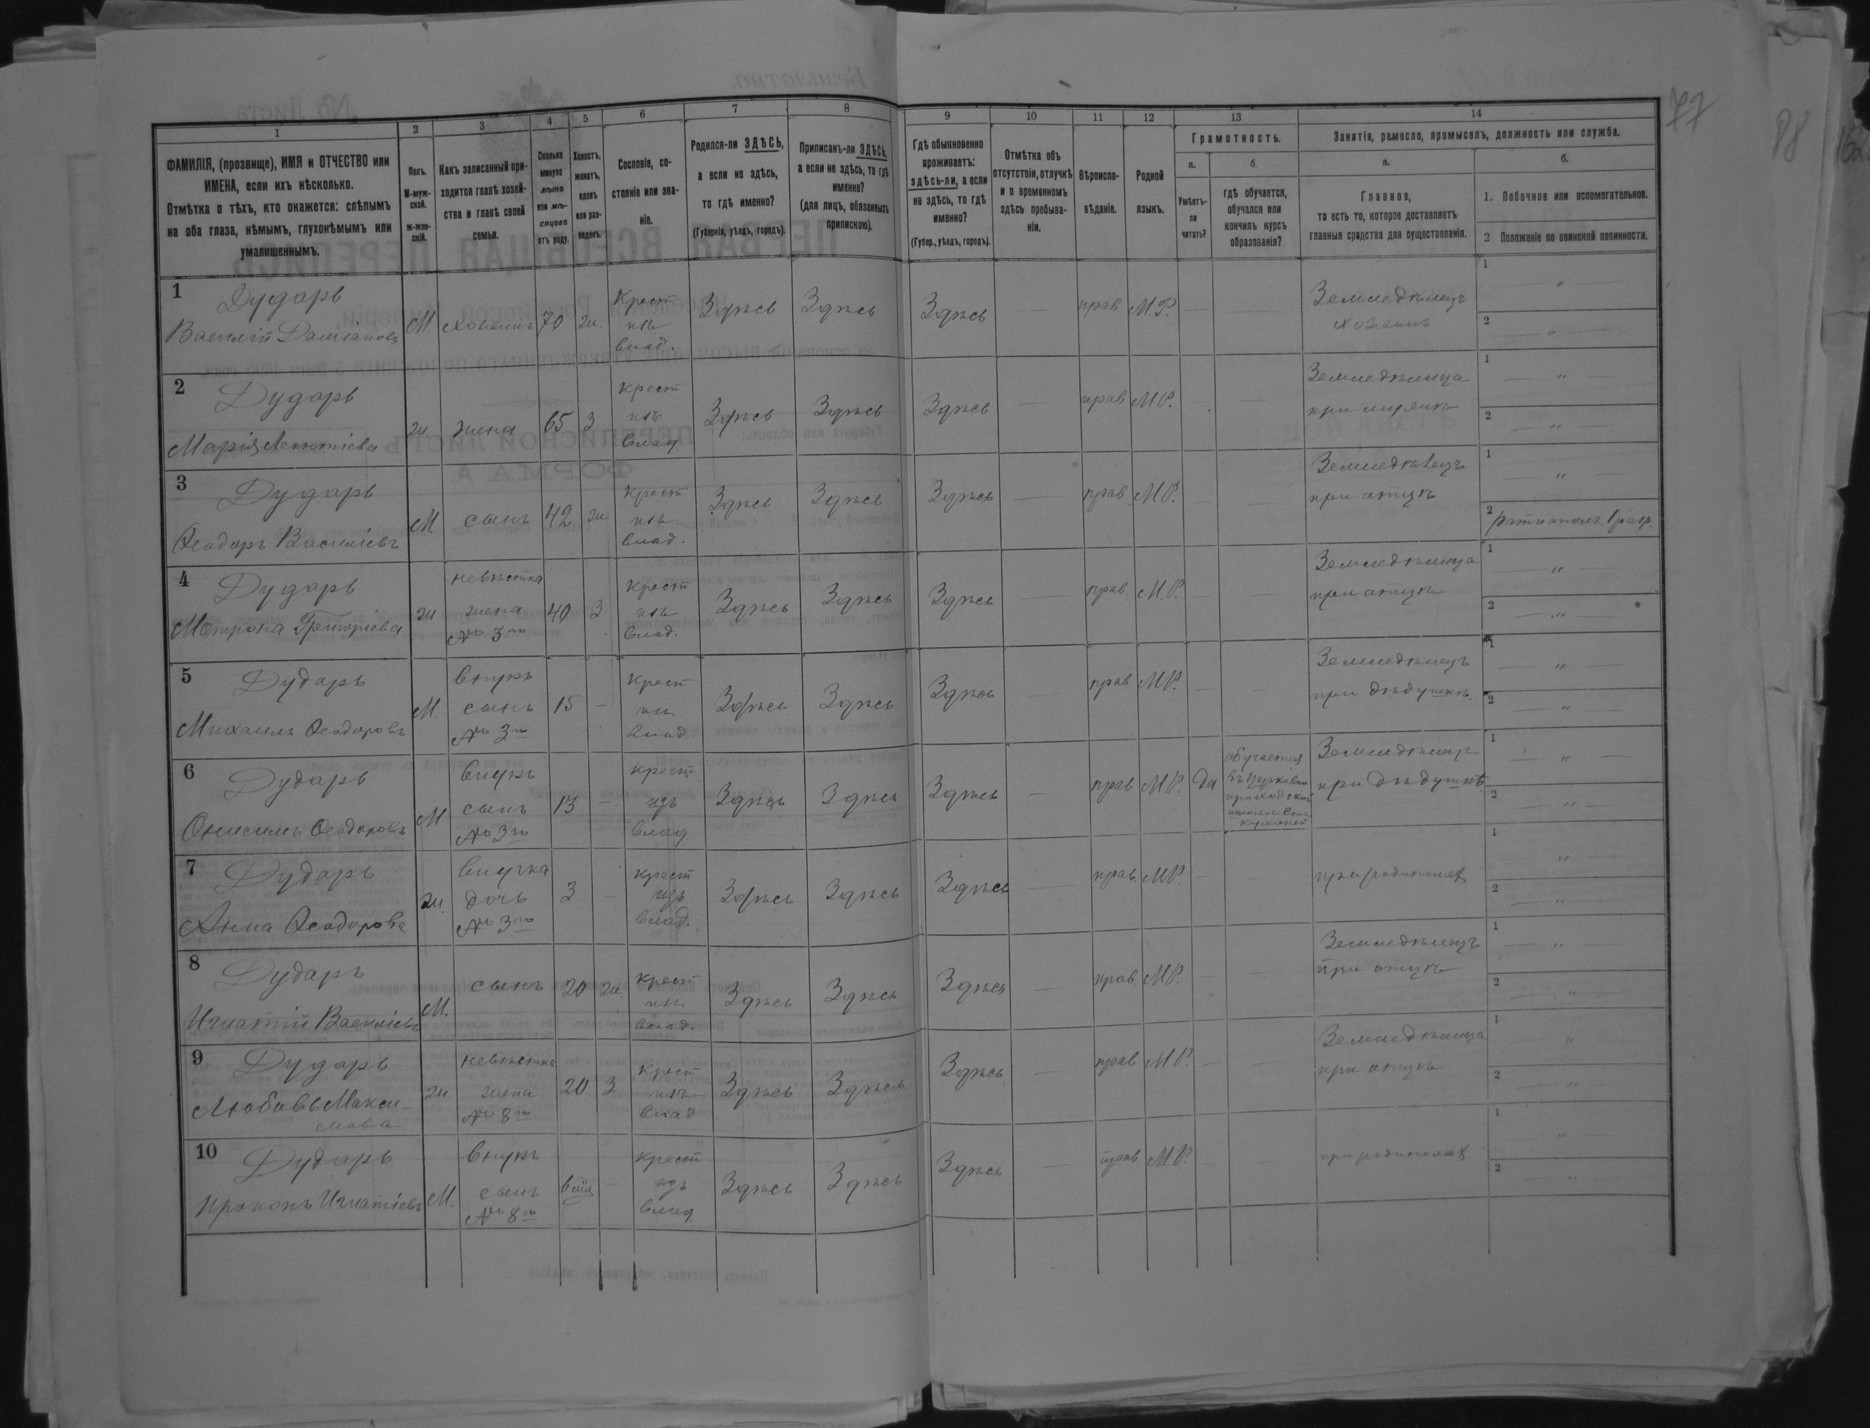 77
88
1
2
3
4
5
6
7
8
9
10
11
12
13
14
ФАМИЛІЯ, (прозвище), ИМЯ и ОТЧЕСТВО или
ИМЕНА, если ихъ нѣсколько.
Отмѣтка о тѣхъ, кто окажется: слѣпымъ
на оба глаза, нѣмымъ, глухонѣмымъ или
умалишеннымъ.
Полъ.
М-муж-
ской.
Ж-жен-
скій.
Какъ записанный при-
ходится главѣ хозяй-
ства и главѣ своей
семьи.
Сколько
минуло
лѣтъ
или мѣ-
сяцевъ
отъ роду.
Холостъ,
женатъ,
вдовъ
или раз-
веденъ.
Сословіе, со-
стояніе или зва-
ніе.
Родился-ли ЗДѢСЬ,
а если не здѣсь,
то гдѣ именно?
(Губернія, уѣздъ, городъ).
Приписанъ-ли ЗДѢСЬ,
а если не здѣсь, то гдѣ
именно?
(для лицъ, обязанныхъ
припискою).
Гдѣ обыкновенно
проживаетъ:
здѣсь-ли, а если
не здѣсь, то гдѣ
именно?
(Губер., уѣздъ, городъ).
Отмѣтка объ
отсутствіи, отлучкѣ
и о временномъ
здѣсь пребыва-
ніи.
Вѣроиспо-
вѣданіе.
Родной
языкъ.
Грамотность.
а.
Умѣетъ-
ли
читать?
б.
гдѣ обучается,
обучался или
кончилъ курсъ
образованія?
Занятія, ремесло, промыселъ, должность или служба.
а.
Главное,
то есть то, которое доставляетъ
главныя средства для существованія.
б.
1. Побочное или вспомогательное.
2 Положеніе по воинской повинности.
1 Дударь
Василій Даміановъ М хозяинъ 70 ж. Крест. изъ влад. Здѣсь Здѣсь Здѣсь — прав М.Р. — — Земледѣлецъ хозяинъ 1 „ 2 „
2 Дударь
Марія Леонтіева ж жена 65 З крест изъ влад Здѣсь Здѣсь Здѣсь — прав М.Р. — — Земледѣлица при мужѣ 1 „ 2 „
3 Дударь
Ѳеодоръ Василіевъ М сынъ 42 ж крест изъ влад. Здѣсь Здѣсь Здѣсь — прав М.Р. — — Земледѣлецъ при отцѣ 1 „ 2 ратн ополч. 1 разр.
4 Дударь
Матрона Григоріева ж невѣстка жена № 3го 40 З крест изъ влад. Здѣсь Здѣсь Здѣсь — прав М.Р. — — Земледѣлица при отцѣ 1 „ 2 „
5 Дударь
Михаилъ Ѳеодоровъ М. внукъ сынъ № 3го 15 — крест изъ влад Здѣсь Здѣсь Здѣсь — прав М.Р. — — Земледѣлецъ при дѣдушкѣ 1 „ 2 „
6 Дударь
Онисимъ Ѳеодоровъ М внукъ сынъ № 3го 13 — крест изъ влад Здѣсь Здѣсь Здѣсь — прав М.Р. Да обучается въ церковно приходской школѣ Земледѣлецъ при дѣдушкѣ 1 „ 2 „
7 Дударь
Анна Ѳеодорова ж внучка дочь № 3го 3 — крест изъ влад. Здѣсь Здѣсь Здѣсь — прав. М.Р. — — при родителях 1 „ 2 „
8 Дударь
Игнатій Василіевъ М. сынъ 20 ж. крест изъ влад. Здѣсь Здѣсь Здѣсь — прав М.Р. — — Земледѣлецъ при отцѣ 1 „ 2 „
9 Дударь
Любовь Макси-
мова ж невѣстка жена № 8го 20 З крест изъ влад Здѣсь Здѣсь Здѣсь — прав М.Р. — — Земледѣлица при отцѣ 1 „ 2 „
10 Дударь
Прокопъ Игнатіевъ М. внукъ сынъ № 8го — крест изъ влад Здѣсь Здѣсь Здѣсь — прав М.Р. — — при родителях 1 „ 2 „